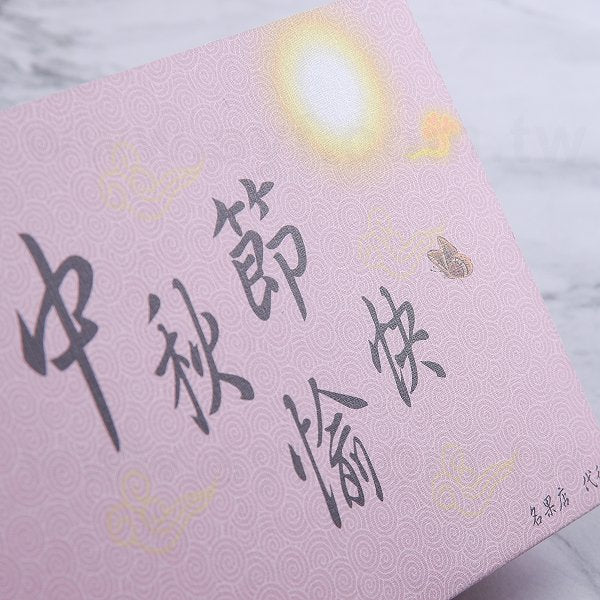 中秋節
愉快
名果店 代
.tw